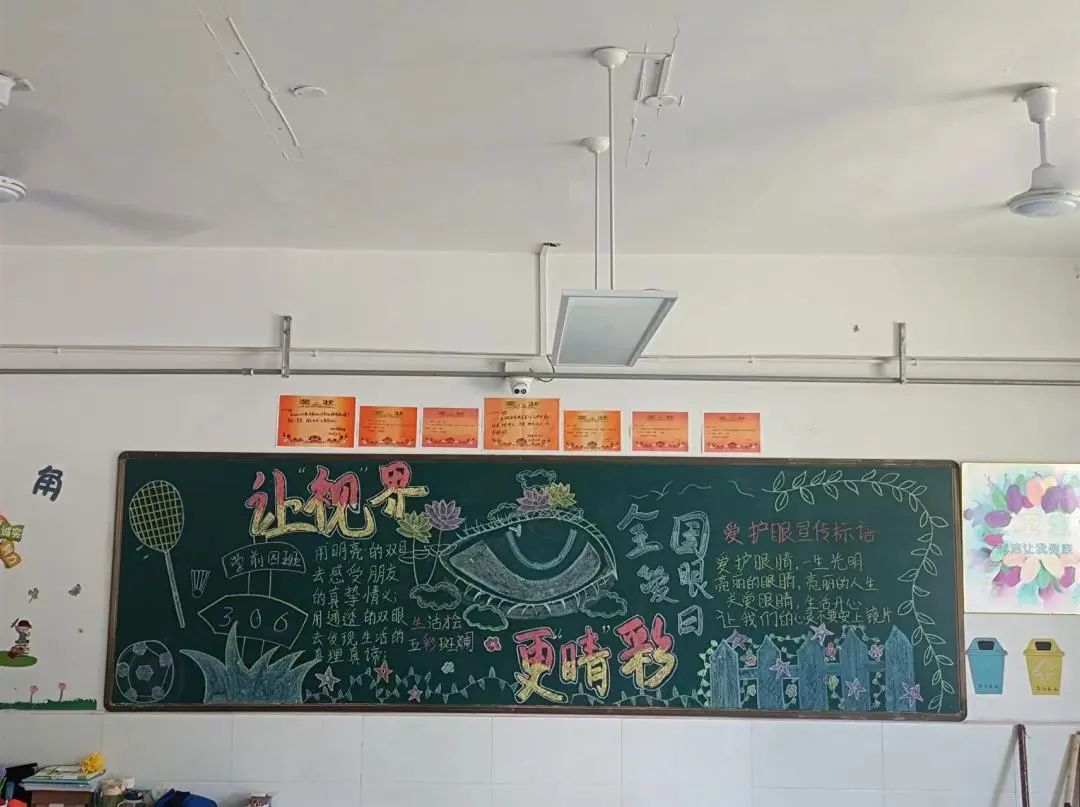 奖状
奖状
奖状
奖状
奖状
奖状
奖状
角
让"视"界
学前四班
306
用明亮的双目
去感受朋友
的真挚情义；
用通透的双眼
去发现生活的
真理真谛；
生活才会
五彩斑斓
更"晴"彩
全国
爱眼日
爱护眼宣传标语
爱护眼睛，一生光明
亮丽的眼睛，亮丽的人生
关爱眼睛，生活开心
让我们的心灵不要安上镜片